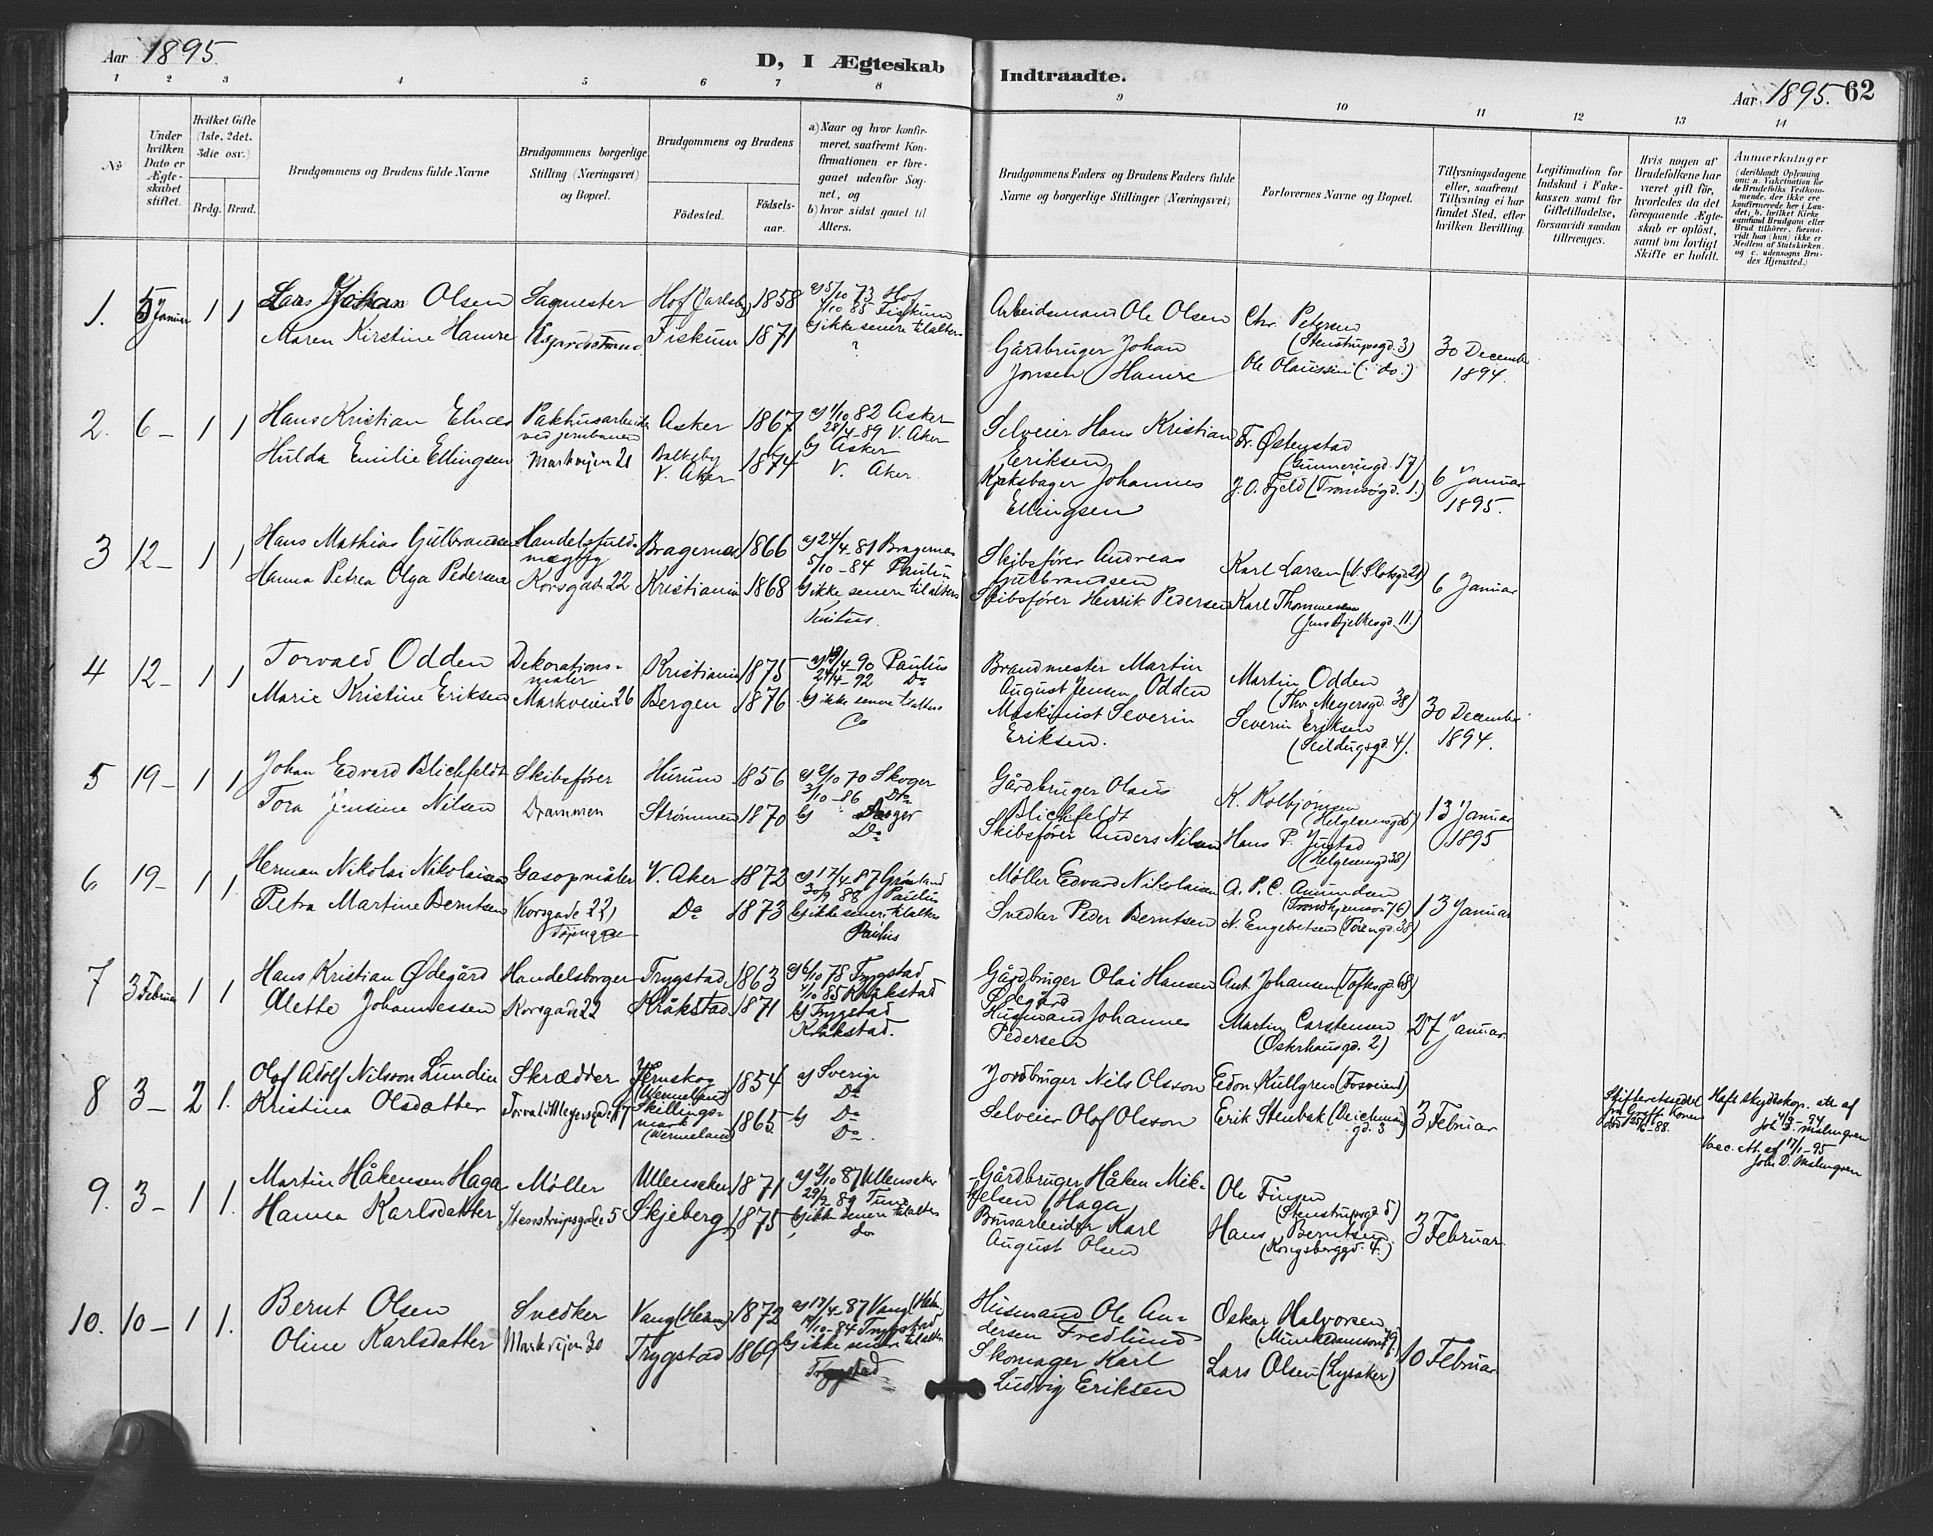 Aar 1895.
D, I Ægteskab
Indtraadte.
Aar 1895. 62
1 2 3 4 5 6 7 8 9 10 11 12 13 14
No
Under hvilken Dato er Ægteskabet stiftet.
Hvilket Gifte (1ste, 2det. 3die osv.)
Brdg. Brud.
Brudgommens og Brudens fulde Navne
Brudgommens borgerlige Stilling (Næringsvei) og Bopæl.
Brudgommens og Brudens
Fødested. Fødsels-aar.
a) Naar og hvor konfirmeret, saafremt Konfirmationen er foregaaet udenfor Sognet, og
b) hvor sidst gaaet til Alters.
Brudgommens Faders og Brudens Faders fulde Navne og borgerlige Stillinger (Næringsvei)
Forlovernes Navne og Bopæl.
Tillysningsdagene eller, saafremt Tillysning ei har fundet Sted, efter hvilken Bevilling.
Legitimation for Indskud i Enkekassen samt for Giftetilladelse, forsaavidt saadan tiltrænges.
Hvis nogen af Brudefolkene har været gift før, hvorledes da det foregaaende Ægteskab er opløst, samt om lovligt Skifte er holdt.
Anmærkninger
1. 5 Januar 1 1 Johan Olsen Sagmester Hof (Jarlsb) 1858 a) 5/10 73 Hof Arbeidsmand Ole Olsen Chr. Petersen (Stenstrupsgd. 3)
Maren Kirstine Hamre Fiskum 1871 1/10 85 Fiskum b) ikke senere tilalters Gårdbruger Johan Jonsen Hamre Ole Olaussen (do.) 30 December 1894.
2. 6 – 1 1 Hans Kristian Pakhusarbeider ved jernbanen Asker 1867 a) 1/10 82 Asker Selveier Hans Kristian Eriksen Fr. Østenstad (Gunnerusgd. 17)
Hulda Emilie Ellingsen Markveien 21 Balkeby V. Aker 1874 28/4 – 89 V. Aker b) Asker V. Aker. Johannes Ellingsen J. O. Fjeld (Tromsøgd. 1.) 6 Januar 1895.
3 12 – 1 1 Hans Mathias Gulbrandsen Handelsfuldmægtig Bragernæs 1866 a) 24/4 – 81 Bragernæs Skibsfører Andreas Gulbrandsen Karl Larsen (N. Slotsgd 21)
Hanna Petrea Olga Pedersen Korsgade 22 Kristiania 1868 5/10 – 84 Paulus b) ikke senere tilalters Skibsfører Henrik Pedersen Karl Thommesen (Jens Bjelkesgd. 11.) 6 Januar
4 12 – 1 1 Torvald Odden Dekorations-maler Kristiania 1875 4 – 90 Paulus Brandmester Martin August Jensen Odden Martin Odden (Thv. Meyersgd. 38)
Marie Kristine Eriksen Markveien 26 Bergen 1876 24/4 – 92 Do b) ikke senere tilalters Maskinist Severin Eriksen. Severin Eriksen (Seildugsgd. 4). 30 December 1894.
5 19 – 1 1 Johan Edvard Blichfeldt Skibsfører Hurum 1856 a) 2/10 70 Skoger Gårdbruger Olaus Blichfeldt K. Kolbjørnsen
Tora Jensine Nilsen Drammen Strømmen 1870 3/10 – 86 Do b) Do Skibsfører Anders Nilsen Hans P. Justad (Helgesensgd 38) 13 Januar 1895
6 19 – 1 1. Herman Nikolai Nikolaisen Gasopmåler V. Aker 1872 a) 17/4 87 Grønland Møller Edvard Nikolaisen A. P. C. Amundsen
Petra Martine Berntsen Korsgade 22, Do 1873 30/9 88 Paulus b) ikke senere tilalters Paulus Snedker Peder Berntsen N. Engebretsen (Tøiengd. 38) 13 Januar
7 3 Februar 1 1 Hans Kristian Ødegård Handelsborger Trygstad 1863 a) 6/10 78 Trygstad Gårdbruger Olai Hansen Ødegård Ant. Johansen (Toftesgd. 68)
Alette Johannessen Korsgade 22 Kråkstad 1871 1/10 85 Kråkstad b) Trygstad Kråkstad. Husmand Johannes Pedersen Martin Carstensen (Østerhausgd. 2) 27 Januar
8 3 – 2 1. Olof Adolf Nilsson Lundin Skrædder Jernskog (Wermeland) 1854 a) Sverige Jordbruger Nils Olsson Edon Kullgren (Fosveien)
Kristina Olsdatter Torvald Meyersgade 17 Skillingsmark (Wermeland) 1865 Do b) Do Do. Selveier Olof Olsson Erik Stenbak (Deichmansgd. 3 3 Februar
4/5 – 94 Joh. D. Malmgren
Vacc. Att. af 17/1 – 95 Joh. D. Malmgren
9. 3 – 1 1. Martin Håkensen Haga Møller Ullensaker 1871 a) 2/10 87 Ullensaker Gårdbruger Håken Mikkelsen Haga Ole Finsen (Stenstrupsgd 5)
Hanna Karlsdatter Stenstrupsgade 5 Skjeberg 1875 29/9 89 Tune b) ikke senere tilalters do Karl August Olsen Hans Berntsen (Kongsberggd. 4.) 3 Februar
10. 10 – 1 1. Bernt Olsen Snedker Vang (Hedem) 1872 a) 17/4 – 87 Vang (Hedm.) Husmand Ole Andersen Fredlund Oskar Halvorsen
Oline Karlsdatter Markveien 30 Trygstad 1869 10 – 84 Trygstad b) ikke senere tilalters Trygstad Skomager Karl Ludvig Eriksen Lars Olsen (Lysaker) 10 Februar